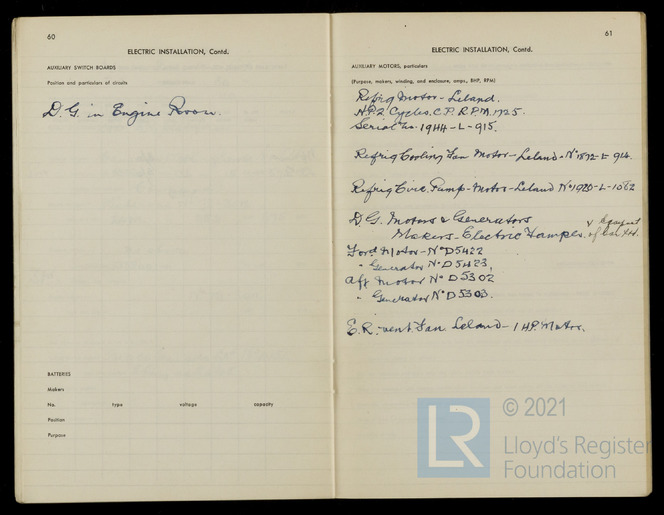 60
ELECTRIC INSTALLATION, Contd.
AUXILIARY SWITCH BOARDS
Position and particulars of circuits
D.G. in Engine Room.
BATTERIES
Makers
No. type voltage capacity
Position
Purpose
61
ELECTRIC INSTALLATION, Contd.
AUXILIARY MOTORS, particulars
(Purpose, makers, winding, and enclosure, amps., BHP, RPM)
Refrig Motor - Leland.
H.P.2 Cycles. C.P. R.P.M. 1725.
Serial No. 1944-L-915.
Refrig Cooling Fan Motor - Leland - No 1872-E-914.
Refrig Circ. Pump - Motor - Leland No 1920-L-1062
D.G. Motors & Generators
Makers - Electric
of
Ford Motor - No D5422
" Generator No D5423,
Aft Motor No D5302
" Generator No D5303.
E.R. vent Fan Leland - 1 HP. Motor.
LR
© 2021
Lloyd's Register
Foundation